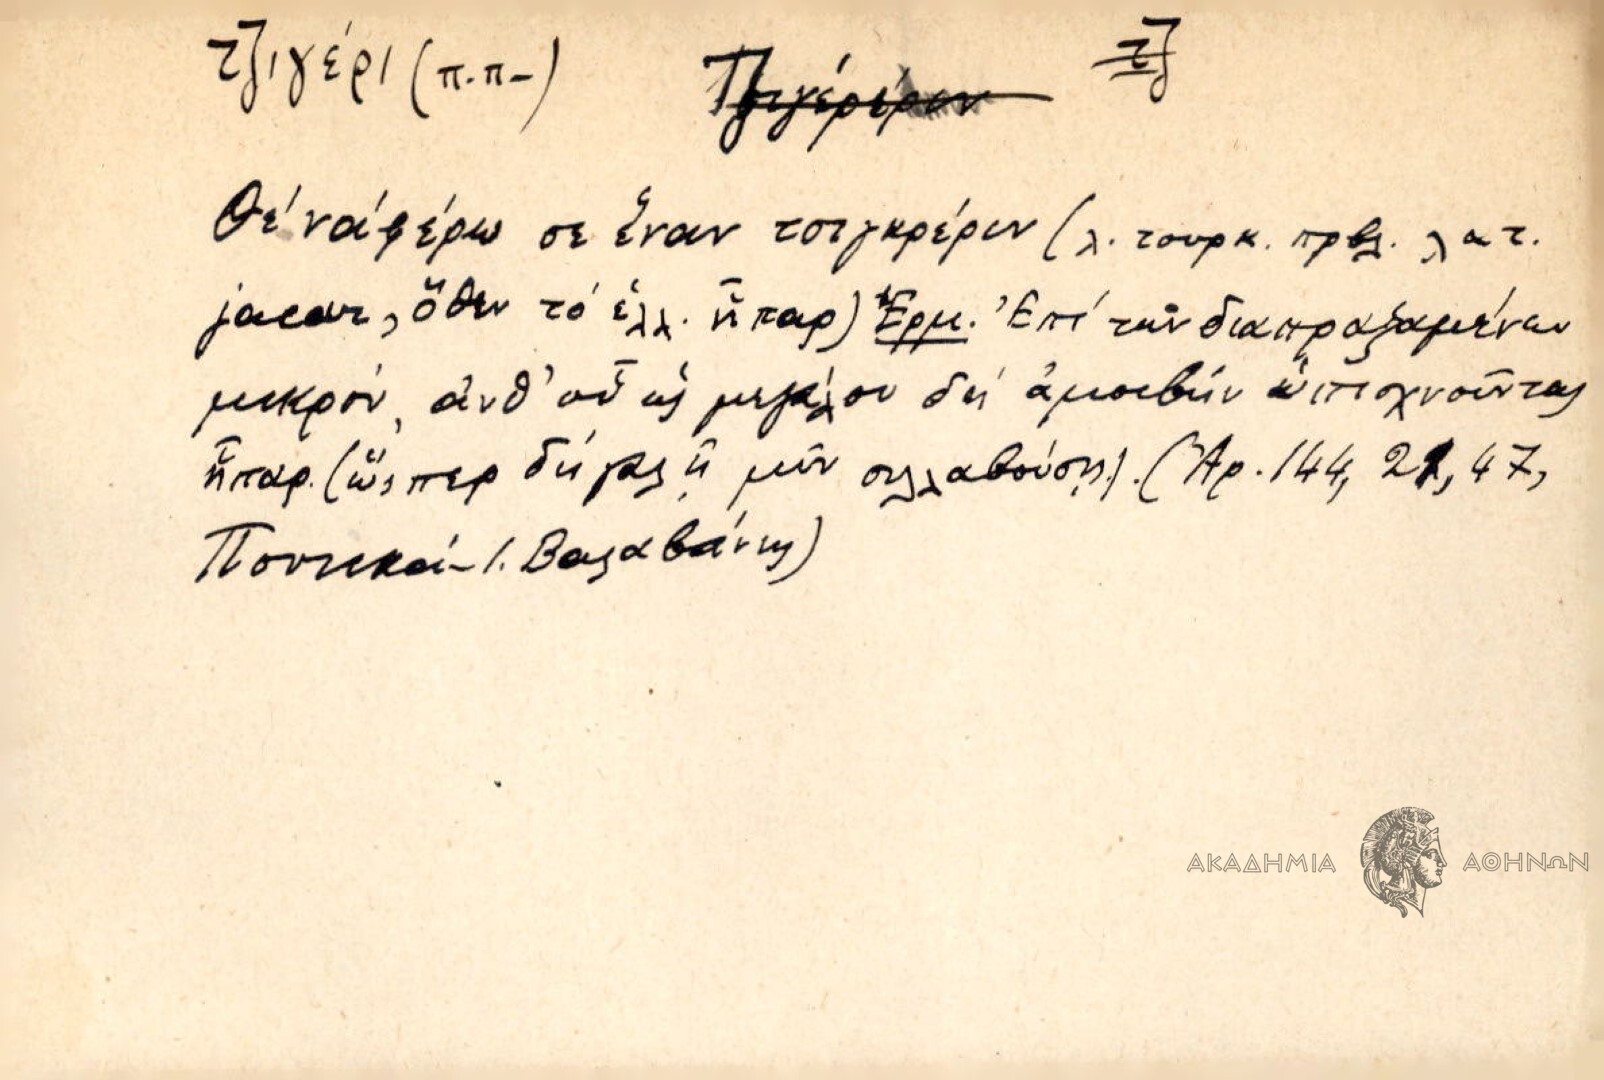 τζιγέρι (π.π-) Τζιγέρέριν τζ
Θέ νά φέρω σε ἕναν τσιγκρέριν (λ. τουρκ. πρβλ. λατ.
jacar, ὅθεν τό ἑλλ. ἧπαρ) Ἑρμ. Ἐπί τῶν διαπραξαμένων
μικρόν, ἀνθ' οὗ ὡς μεγάλου δή ἀμοιβήν ὑπισχνοῦνται
ἧπαρ. (ὥσπερ δή γαλῆ μῦν συλλαβούσῃ). (Ἀρ. 144, 21, 47,
Ποντικά - Ι. Βαλαβάνης)
ΑΚΑΔΗΜΙΑ ΑΘΗΝΩΝ